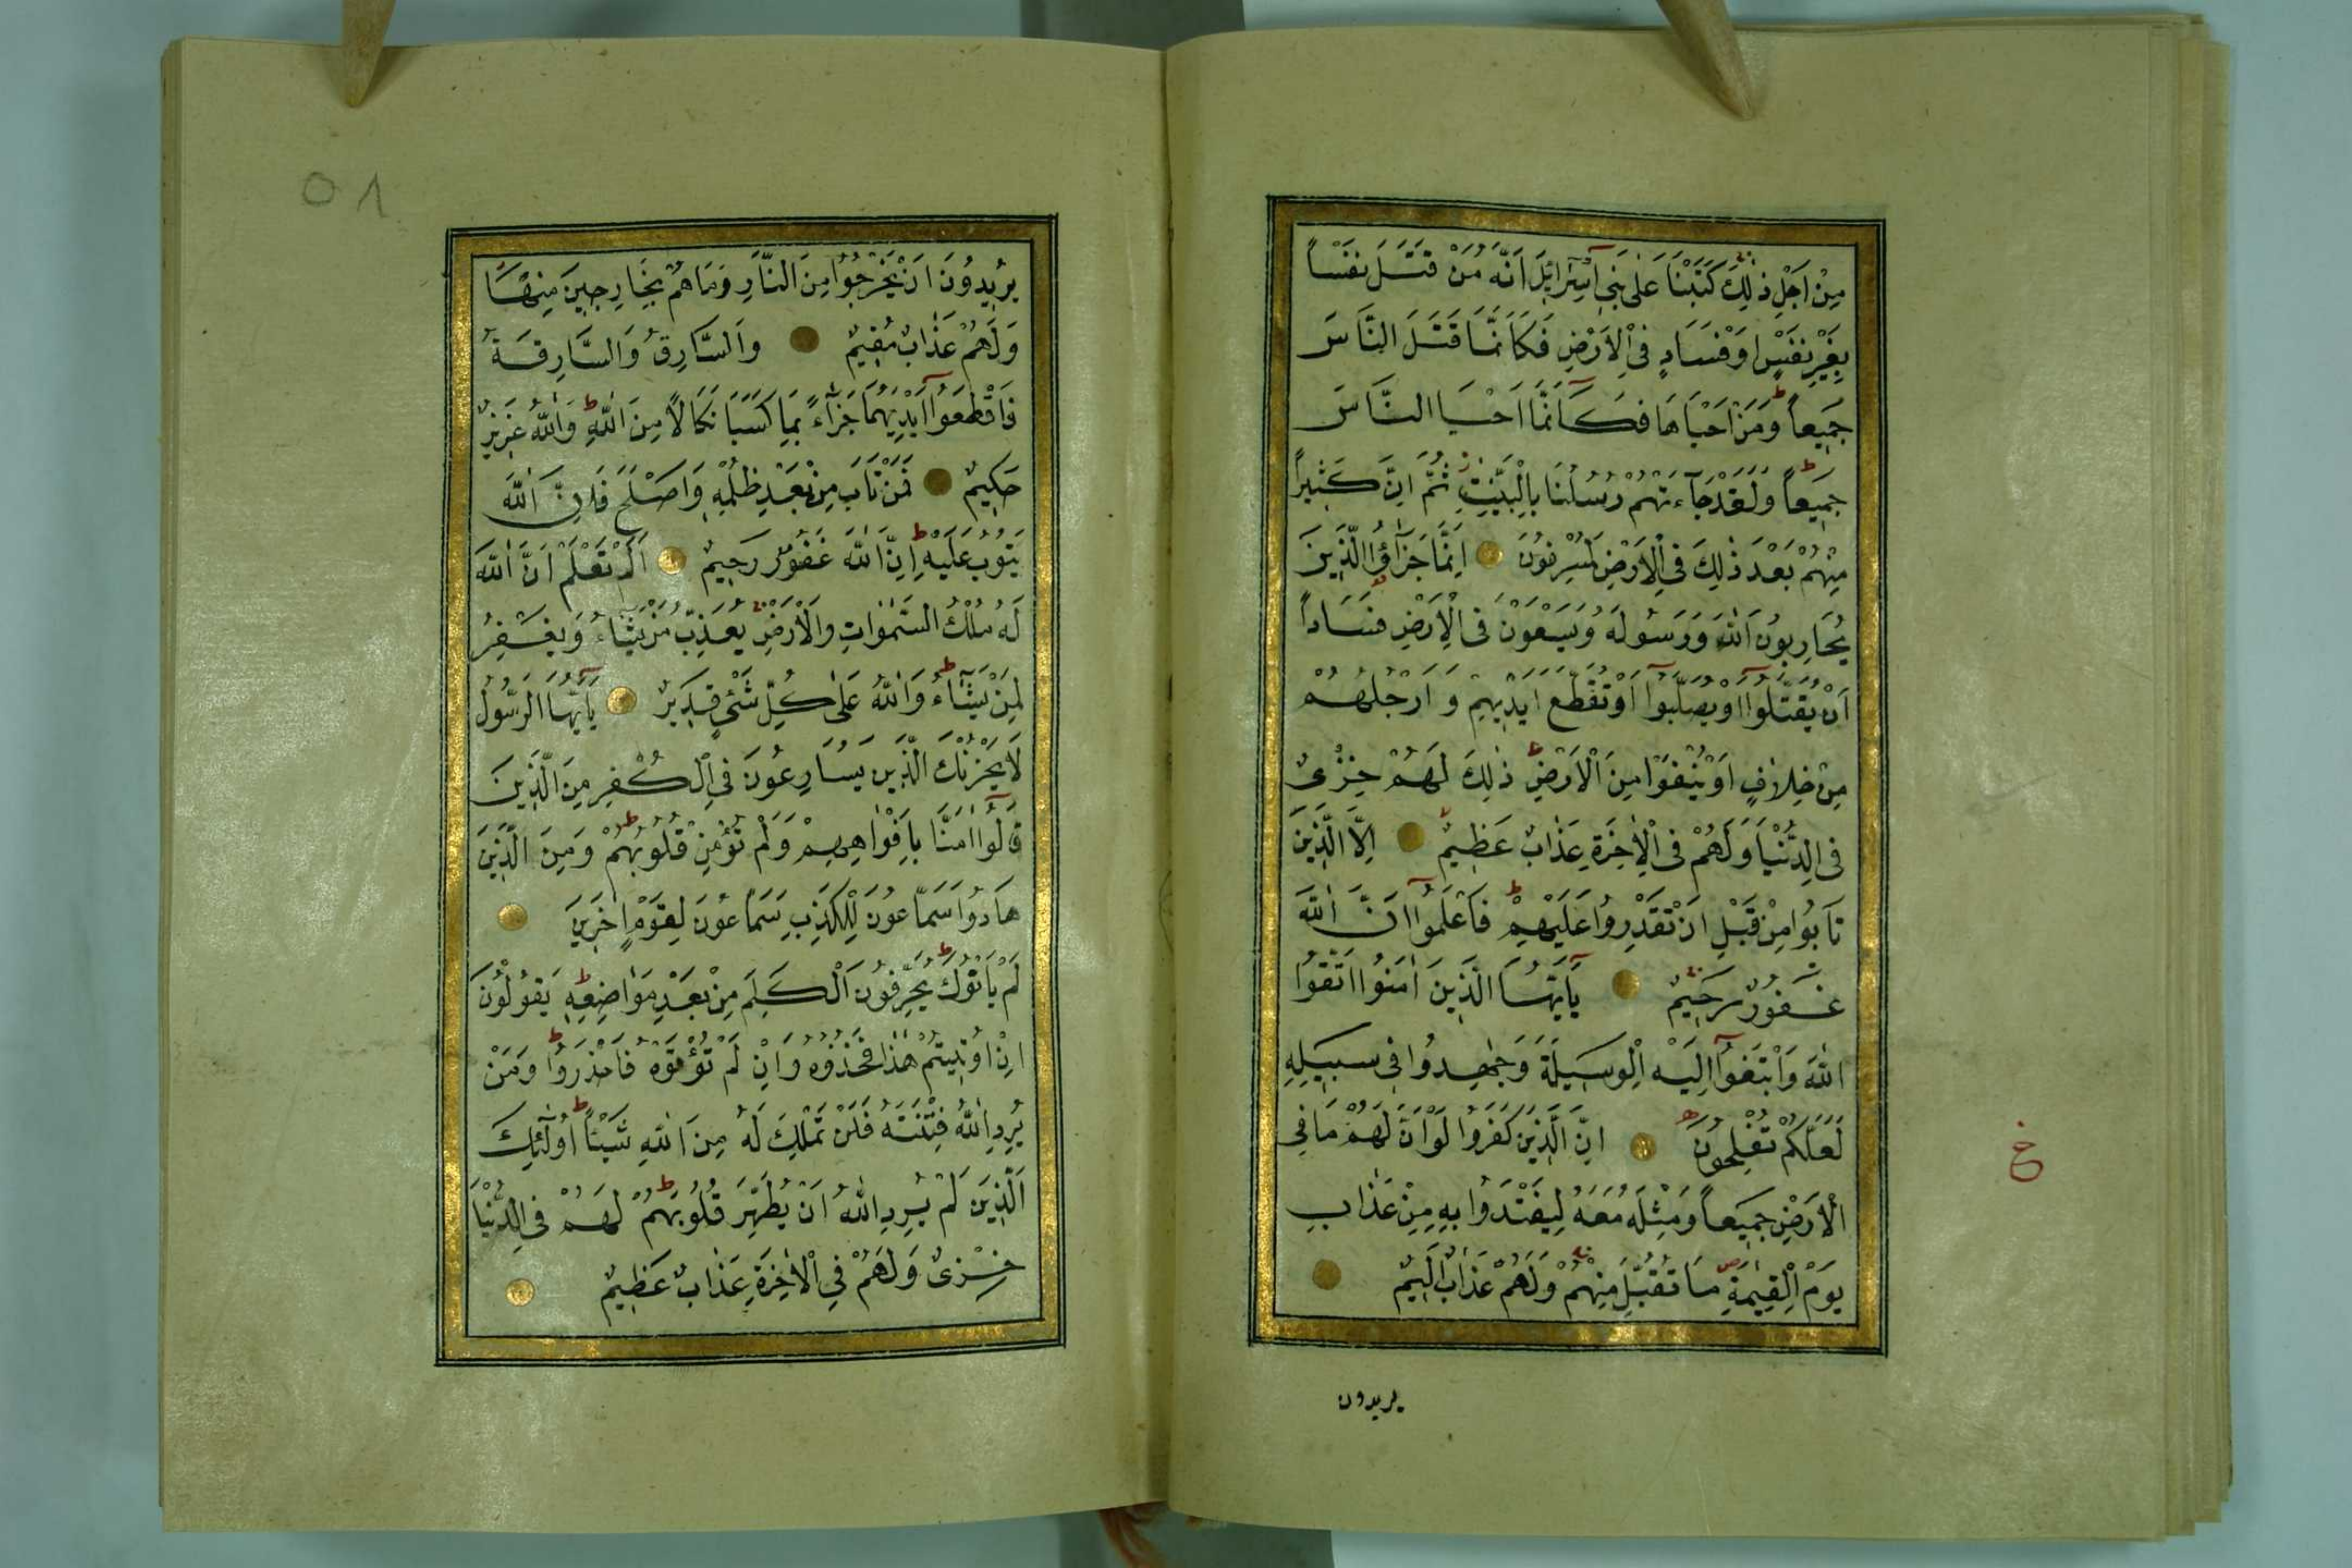 مِنْ اَجْلِ ذٰلِكَ كَتَبْنَا عَلٰى بَنِٓي اِسْرَٓائِلَ اَنَّهُ مَنْ قَتَلَ نَفْسًا
بِغَيْرِ نَفْسٍ اَوْ فَسَادٍ فِي الْاَرْضِ فَكَاَنَّمَا قَتَلَ النَّاسَ
جَمِيعًا ط وَمَنْ اَحْيَاهَا فَكَاَنَّمَٓا اَحْيَا النَّاسَ
جَمِيعًا ط وَلَقَدْ جَٓاءَتْهُمْ رُسُلُنَا بِالْبَيِّنٰتِ ز ثُمَّ اِنَّ كَثِيرًا
مِنْهُمْ بَعْدَ ذٰلِكَ فِي الْاَرْضِ لَمُسْرِفُونَ اِنَّمَا جَزٰٓؤُا الَّذِينَ
يُحَارِبُونَ اللّٰهَ وَرَسُولَهُ وَيَسْعَوْنَ فِي الْاَرْضِ فَسَادًا
اَنْ يُقَتَّلُٓوا اَوْ يُصَلَّبُٓوا اَوْ تُقَطَّعَ اَيْدِيهِمْ وَاَرْجُلُهُمْ
مِنْ خِلَافٍ اَوْ يُنْفَوْا مِنَ الْاَرْضِ ط ذٰلِكَ لَهُمْ خِزْيٌ
فِي الدُّنْيَا وَلَهُمْ فِي الْاٰخِرَةِ عَذَابٌ عَظِيمٌ اِلَّا الَّذِينَ
تَابُوا مِنْ قَبْلِ اَنْ تَقْدِرُوا عَلَيْهِمْ ط فَاعْلَمُٓوا اَنَّ اللّٰهَ
غَفُورٌ رَحِيمٌ يَٓا اَيُّهَا الَّذِينَ اٰمَنُوا اتَّقُوا
اللّٰهَ وَابْتَغُٓوا اِلَيْهِ الْوَسِيلَةَ وَجَاهِدُوا فِي سَبِيلِهِ
لَعَلَّكُمْ تُفْلِحُونَ اِنَّ الَّذِينَ كَفَرُوا لَوْ اَنَّ لَهُمْ مَا فِي
الْاَرْضِ جَمِيعًا وَمِثْلَهُ مَعَهُ لِيَفْتَدُوا بِهِ مِنْ عَذَابِ
يَوْمِ الْقِيٰمَةِ مَا تُقُبِّلَ مِنْهُمْ وَلَهُمْ عَذَابٌ اَلِيمٌ
يريدون
خ
٥٨
يُرِيدُونَ اَنْ يَخْرُجُوا مِنَ النَّارِ وَمَا هُمْ بِخَارِجِينَ مِنْهَا
وَلَهُمْ عَذَابٌ مُقِيمٌ وَالسَّارِقُ وَالسَّارِقَةُ
فَاقْطَعُٓوا اَيْدِيَهُمَا جَزَٓاءً بِمَا كَسَبَا نَكَالًا مِنَ اللّٰهِ ط وَاللّٰهُ عَزِيزٌ
حَكِيمٌ فَمَنْ تَابَ مِنْ بَعْدِ ظُلْمِهِ وَاَصْلَحَ فَاِنَّ اللّٰهَ
يَتُوبُ عَلَيْهِ ط اِنَّ اللّٰهَ غَفُورٌ رَحِيمٌ اَلَمْ تَعْلَمْ اَنَّ اللّٰهَ
لَهُ مُلْكُ السَّمٰوَاتِ وَالْاَرْضِ يُعَذِّبُ مَنْ يَشَٓاءُ وَيَغْفِرُ
لِمَنْ يَشَٓاءُ ط وَاللّٰهُ عَلٰى كُلِّ شَيْءٍ قَدِيرٌ يَٓا اَيُّهَا الرَّسُولُ
لَا يَحْزُنْكَ الَّذِينَ يُسَارِعُونَ فِي الْكُفْرِ مِنَ الَّذِينَ
قَالُٓوا اٰمَنَّا بِاَفْوَاهِهِمْ وَلَمْ تُؤْمِنْ قُلُوبُهُمْ ط وَمِنَ الَّذِينَ
هَادُوا سَمَّاعُونَ لِلْكَذِبِ سَمَّاعُونَ لِقَوْمٍ اٰخَرِينَ
لَمْ يَاْتُوكَ ط يُحَرِّفُونَ الْكَلِمَ مِنْ بَعْدِ مَوَاضِعِهِ ط يَقُولُونَ
اِنْ اُوتِيتُمْ هٰذَا فَخُذُوهُ وَاِنْ لَمْ تُؤْتَوْهُ فَاحْذَرُوا ط وَمَنْ
يُرِدِ اللّٰهُ فِتْنَتَهُ فَلَنْ تَمْلِكَ لَهُ مِنَ اللّٰهِ شَيْئًا ط اُولٰٓئِكَ
الَّذِينَ لَمْ يُرِدِ اللّٰهُ اَنْ يُطَهِّرَ قُلُوبَهُمْ ط لَهُمْ فِي الدُّنْيَا
خِزْيٌ وَلَهُمْ فِي الْاٰخِرَةِ عَذَابٌ عَظِيمٌ